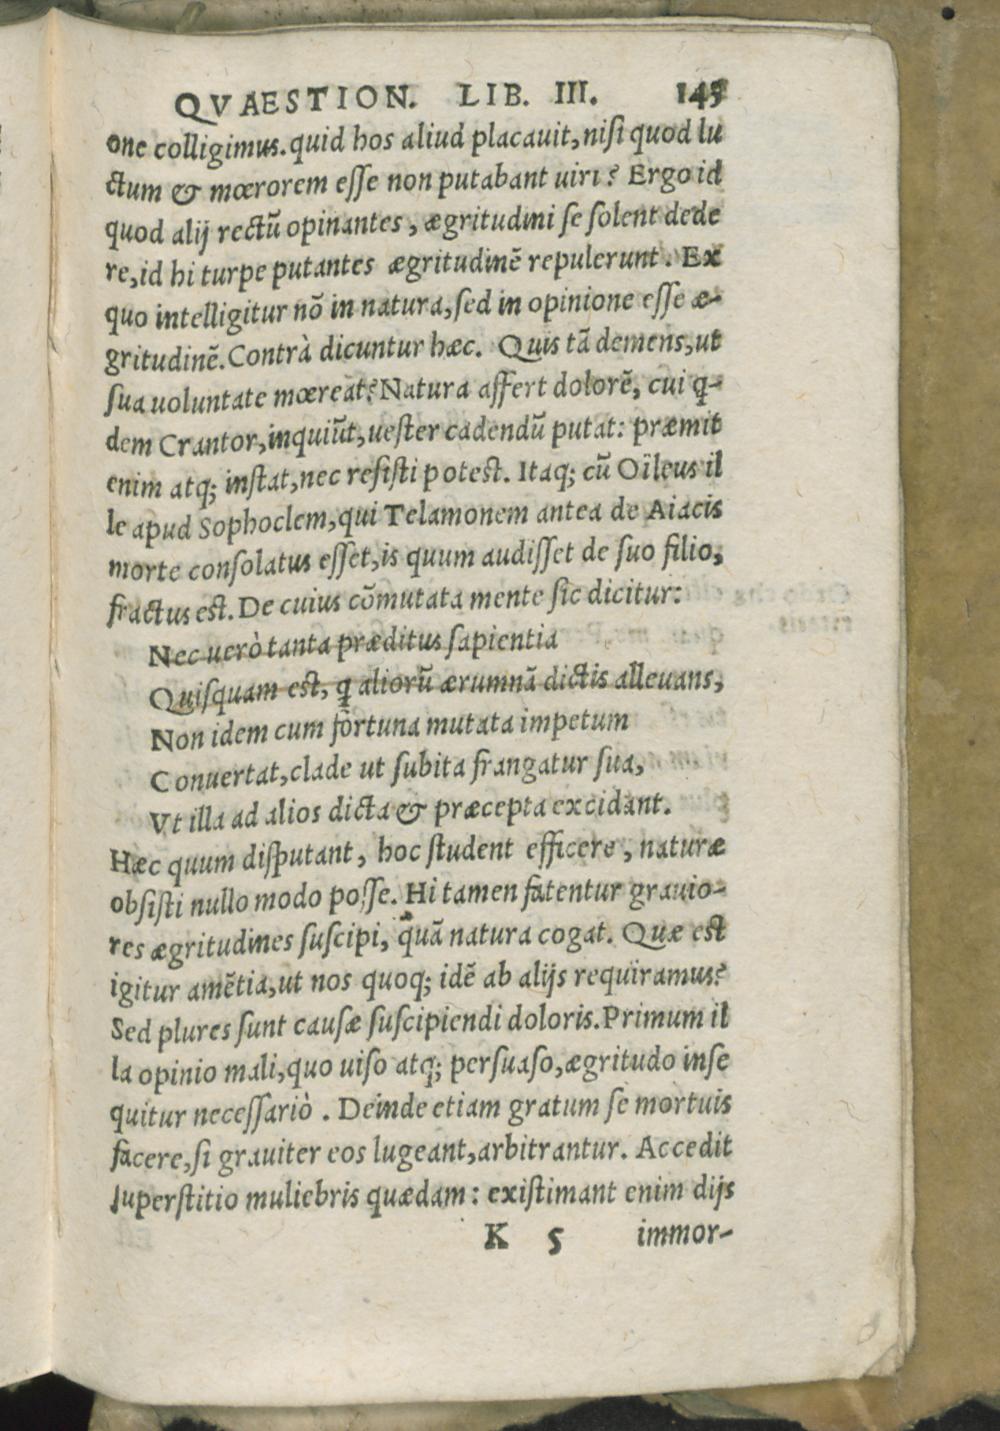 QVAESTION. LIB. III. 145
one colligimus. quid hos aliud placauit, nisi quod lu
ctum & mœrorem esse non putabant uiri? Ergo id
quod alij rectū opinantes, ægritudini se solent dede
re, id hi turpe putantes ægritudinē repulerunt. Ex
quo intelligitur nō in natura, sed in opinione esse æ-
gritudinē. Contrà dicuntur hæc. Quis tā demens, ut
sua uoluntate mœreat? Natura affert dolorē, cui q-
dem Crantor, inquiūt, uester cadendū putat: præmit
enim atq; instat, nec resisti potest. Itaq; cū Oïleus il
le apud Sophoclem, qui Telamonem antea de Aiacis
morte consolatus esset, is quum audisset de suo filio,
fractus est. De cuius cōmutata mente sic dicitur:
Nec uerò tanta præditus sapientia
Quisquam est, q aliorū ærumnā dictis alleuans,
Non idem cum fortuna mutata impetum
Conuertat, clade ut subita frangatur sua,
Vt illa ad alios dicta & præcepta excidant.
Hæc quum disputant, hoc student efficere, naturæ
obsisti nullo modo posse. Hi tamen fatentur grauio-
res ægritudines suscipi, quā natura cogat. Quæ est
igitur amētia, ut nos quoq; idē ab alijs requiramus?
Sed plures sunt causæ suscipiendi doloris. Primum il
la opinio mali, quo uiso atq; persuaso, ægritudo inse
quitur necessariò. Deinde etiam gratum se mortuis
facere, si grauiter eos lugeant, arbitrantur. Accedit
superstitio muliebris quædam: existimant enim dijs
K 5 immor-